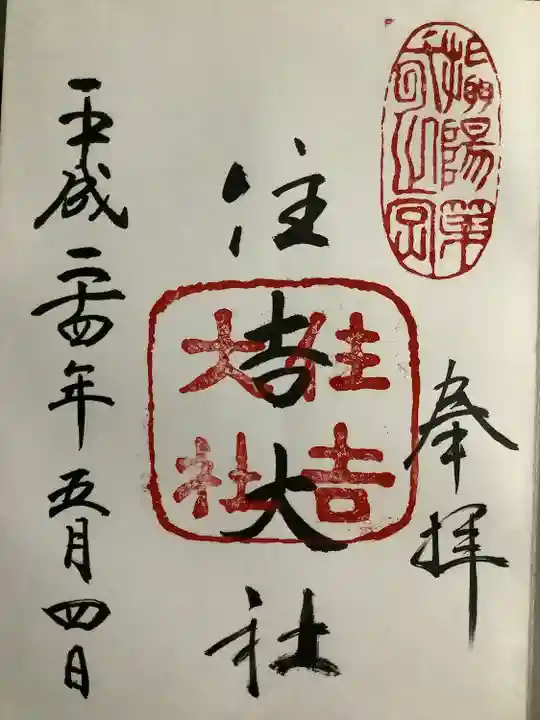 陽第
之宮
奉拝
住吉大社
住吉
大社
平成二十四年五月四日